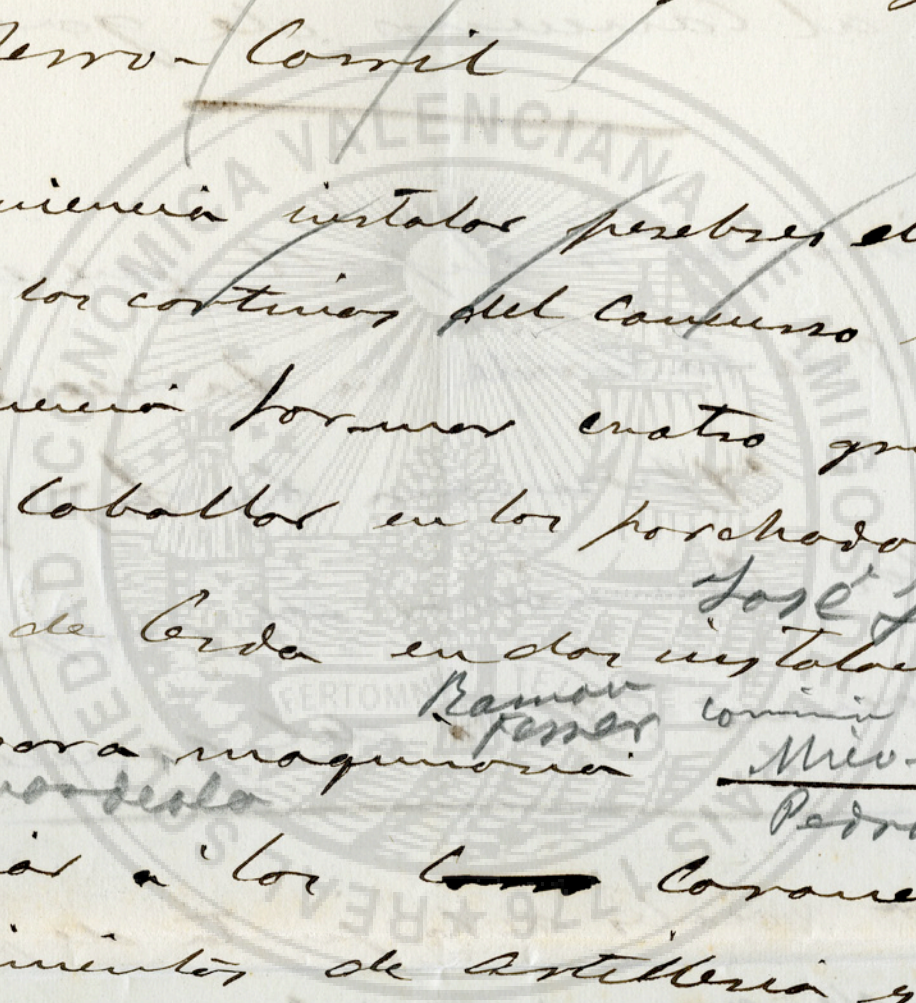 Ferro-Carril
niencia instalar pesebres en
los cortinas del Concurso
niencia formar cuatro gru
Caballar en los porchado
José
de Cerda en dos instalac
Ramon
Ferrer comisión
para maquinaria Miev-
Pedro
iar a los Corone
imientos de artilleria y
SOCIEDAD ECONOMICA VALENCIANA DE AMIGOS DEL PAIS 1776 ★ REAL